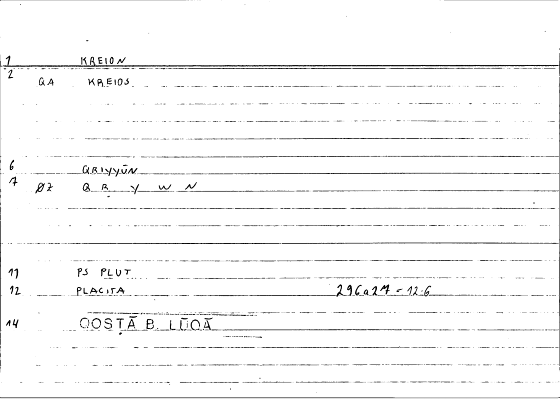 1 KREION
2 QA KREIOS
6 QRIYYŪN
7 ØZ Q R Y W N
11 PS PLUT
12 PLACITA 296a27 - 12.6
14 QOSṬĀ B. LŪQĀ